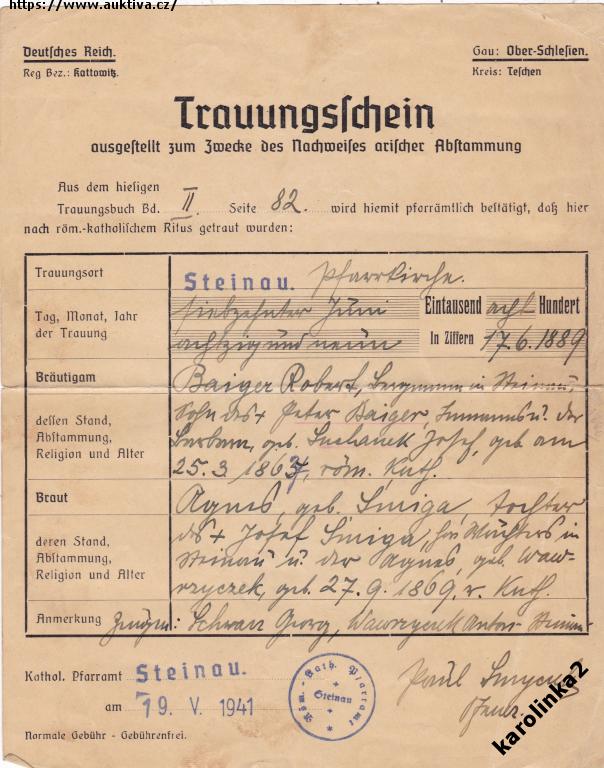 https://www.auktiva.cz/
Deutsches Reich.
Reg Bez.: Kattowitz.
Gau: Ober-Schlesien.
Kreis: Teschen
Trauungsschein
ausgestellt zum Zwecke des Nachweises arischer Abstammung
Aus dem hiesigen
Trauungsbuch Bd. II. Seite 82. wird hiemit pfarrämtlich bestätigt, daß hier
nach röm.-katholischem Ritus getraut wurden:
Trauungsort
Steinau. Pfarrkirche.
Tag, Monat, Jahr
der Trauung
siebzehnter Juni
achtzig und neun
Eintausend acht Hundert
In Ziffern 17.6.1889
Bräutigam
dessen Stand,
Abstammung,
Religion und Alter
Baiger Robert, Bergmann in Steinau,
Sohn des + Peter Baiger, u. der
Barbara, geb. Suchanek Josef, geb. am
25.3 1867, röm. Kath.
Braut
deren Stand,
Abstammung,
Religion und Alter
Agnes, geb. Smiga, Tochter
des + Josef Smiga, Wächters in
Steinau u. der Agnes, geb. Waw-
rzyczek, geb. 27.9.1869, r. Kath.
Anmerkung
Zeugen: Schwarz Georg, Wawrzyczek Anton Steinau
Kathol. Pfarramt Steinau.
am 19. V. 1941
Röm.-Kath. Pfarramt
Steinau
Paul
Normale Gebühr - Gebührenfrei.
karolinka2